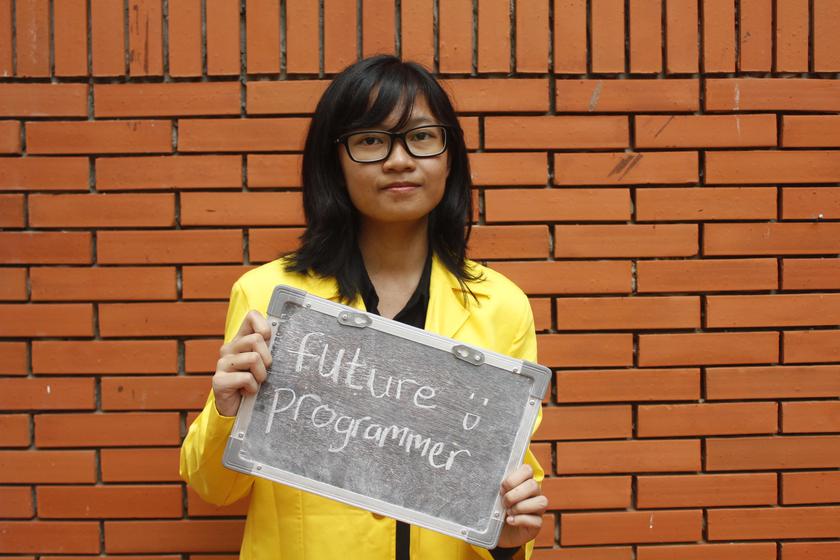 future :D
programmer